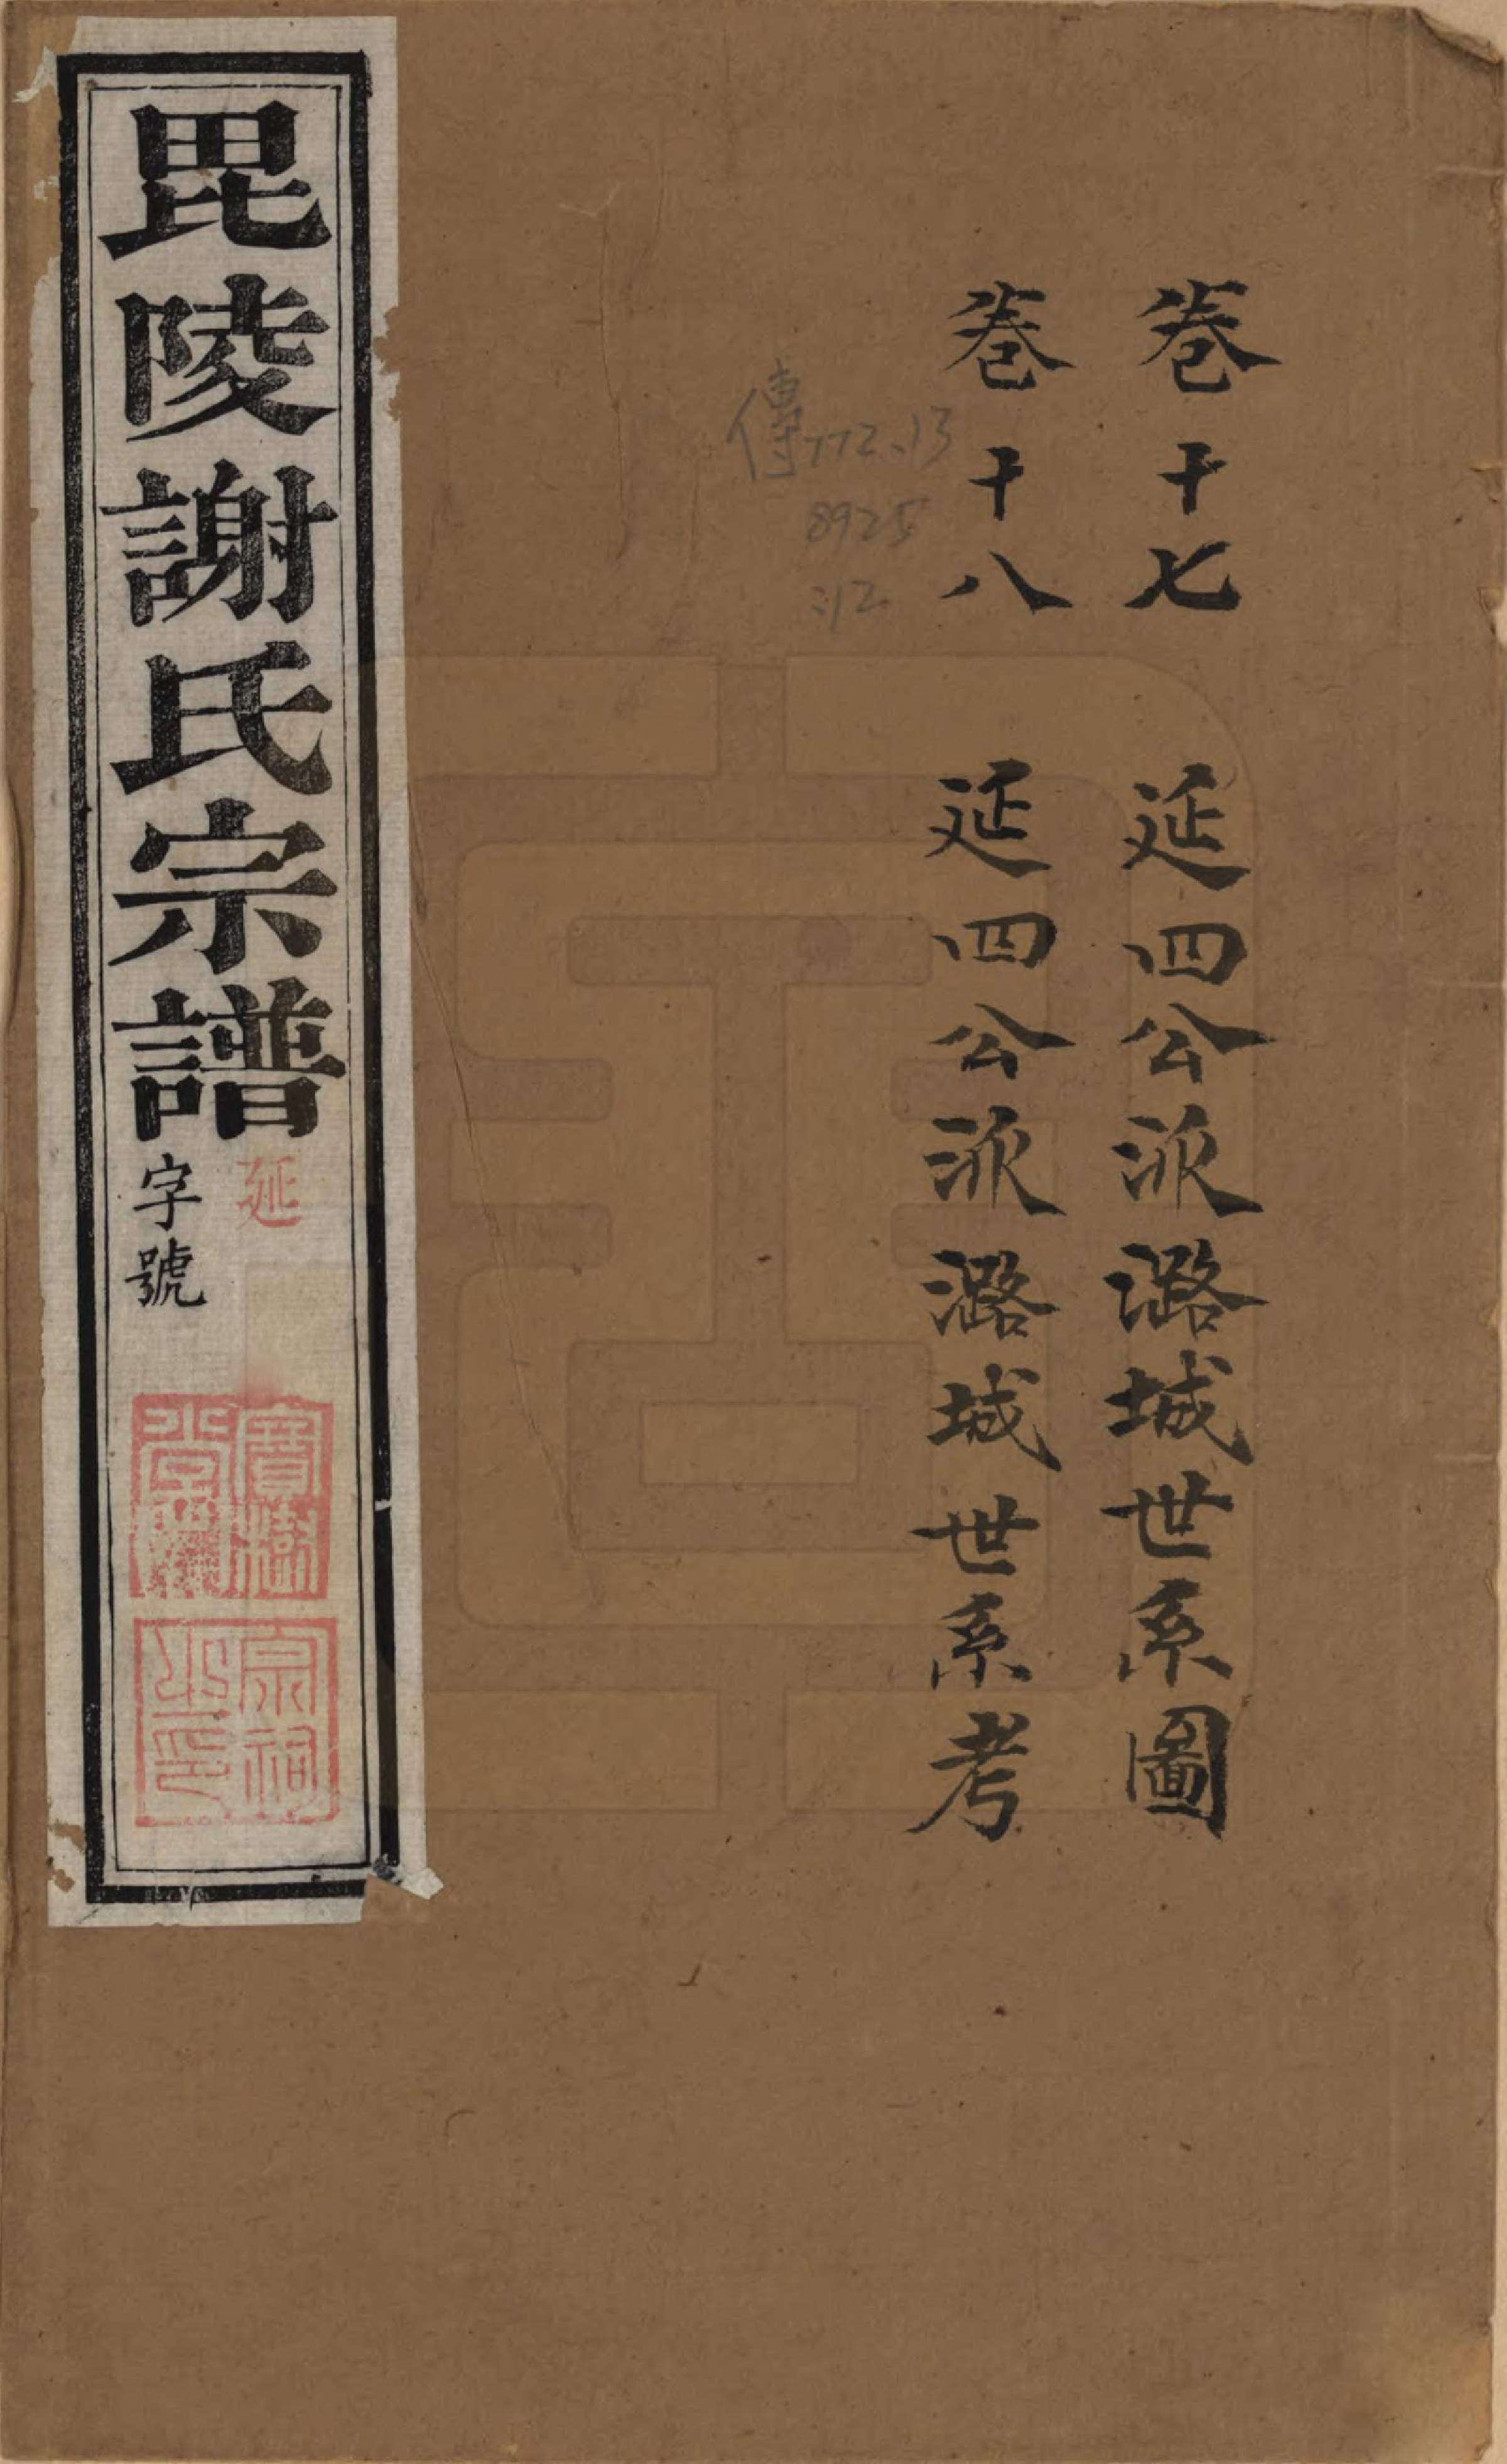 卷十七　延四公派潞城世系圖
卷十八　延四公派潞城世系考
傳772.13
8925
:12
毘陵謝氏宗譜
延
字號
寶樹
宗祠
之印